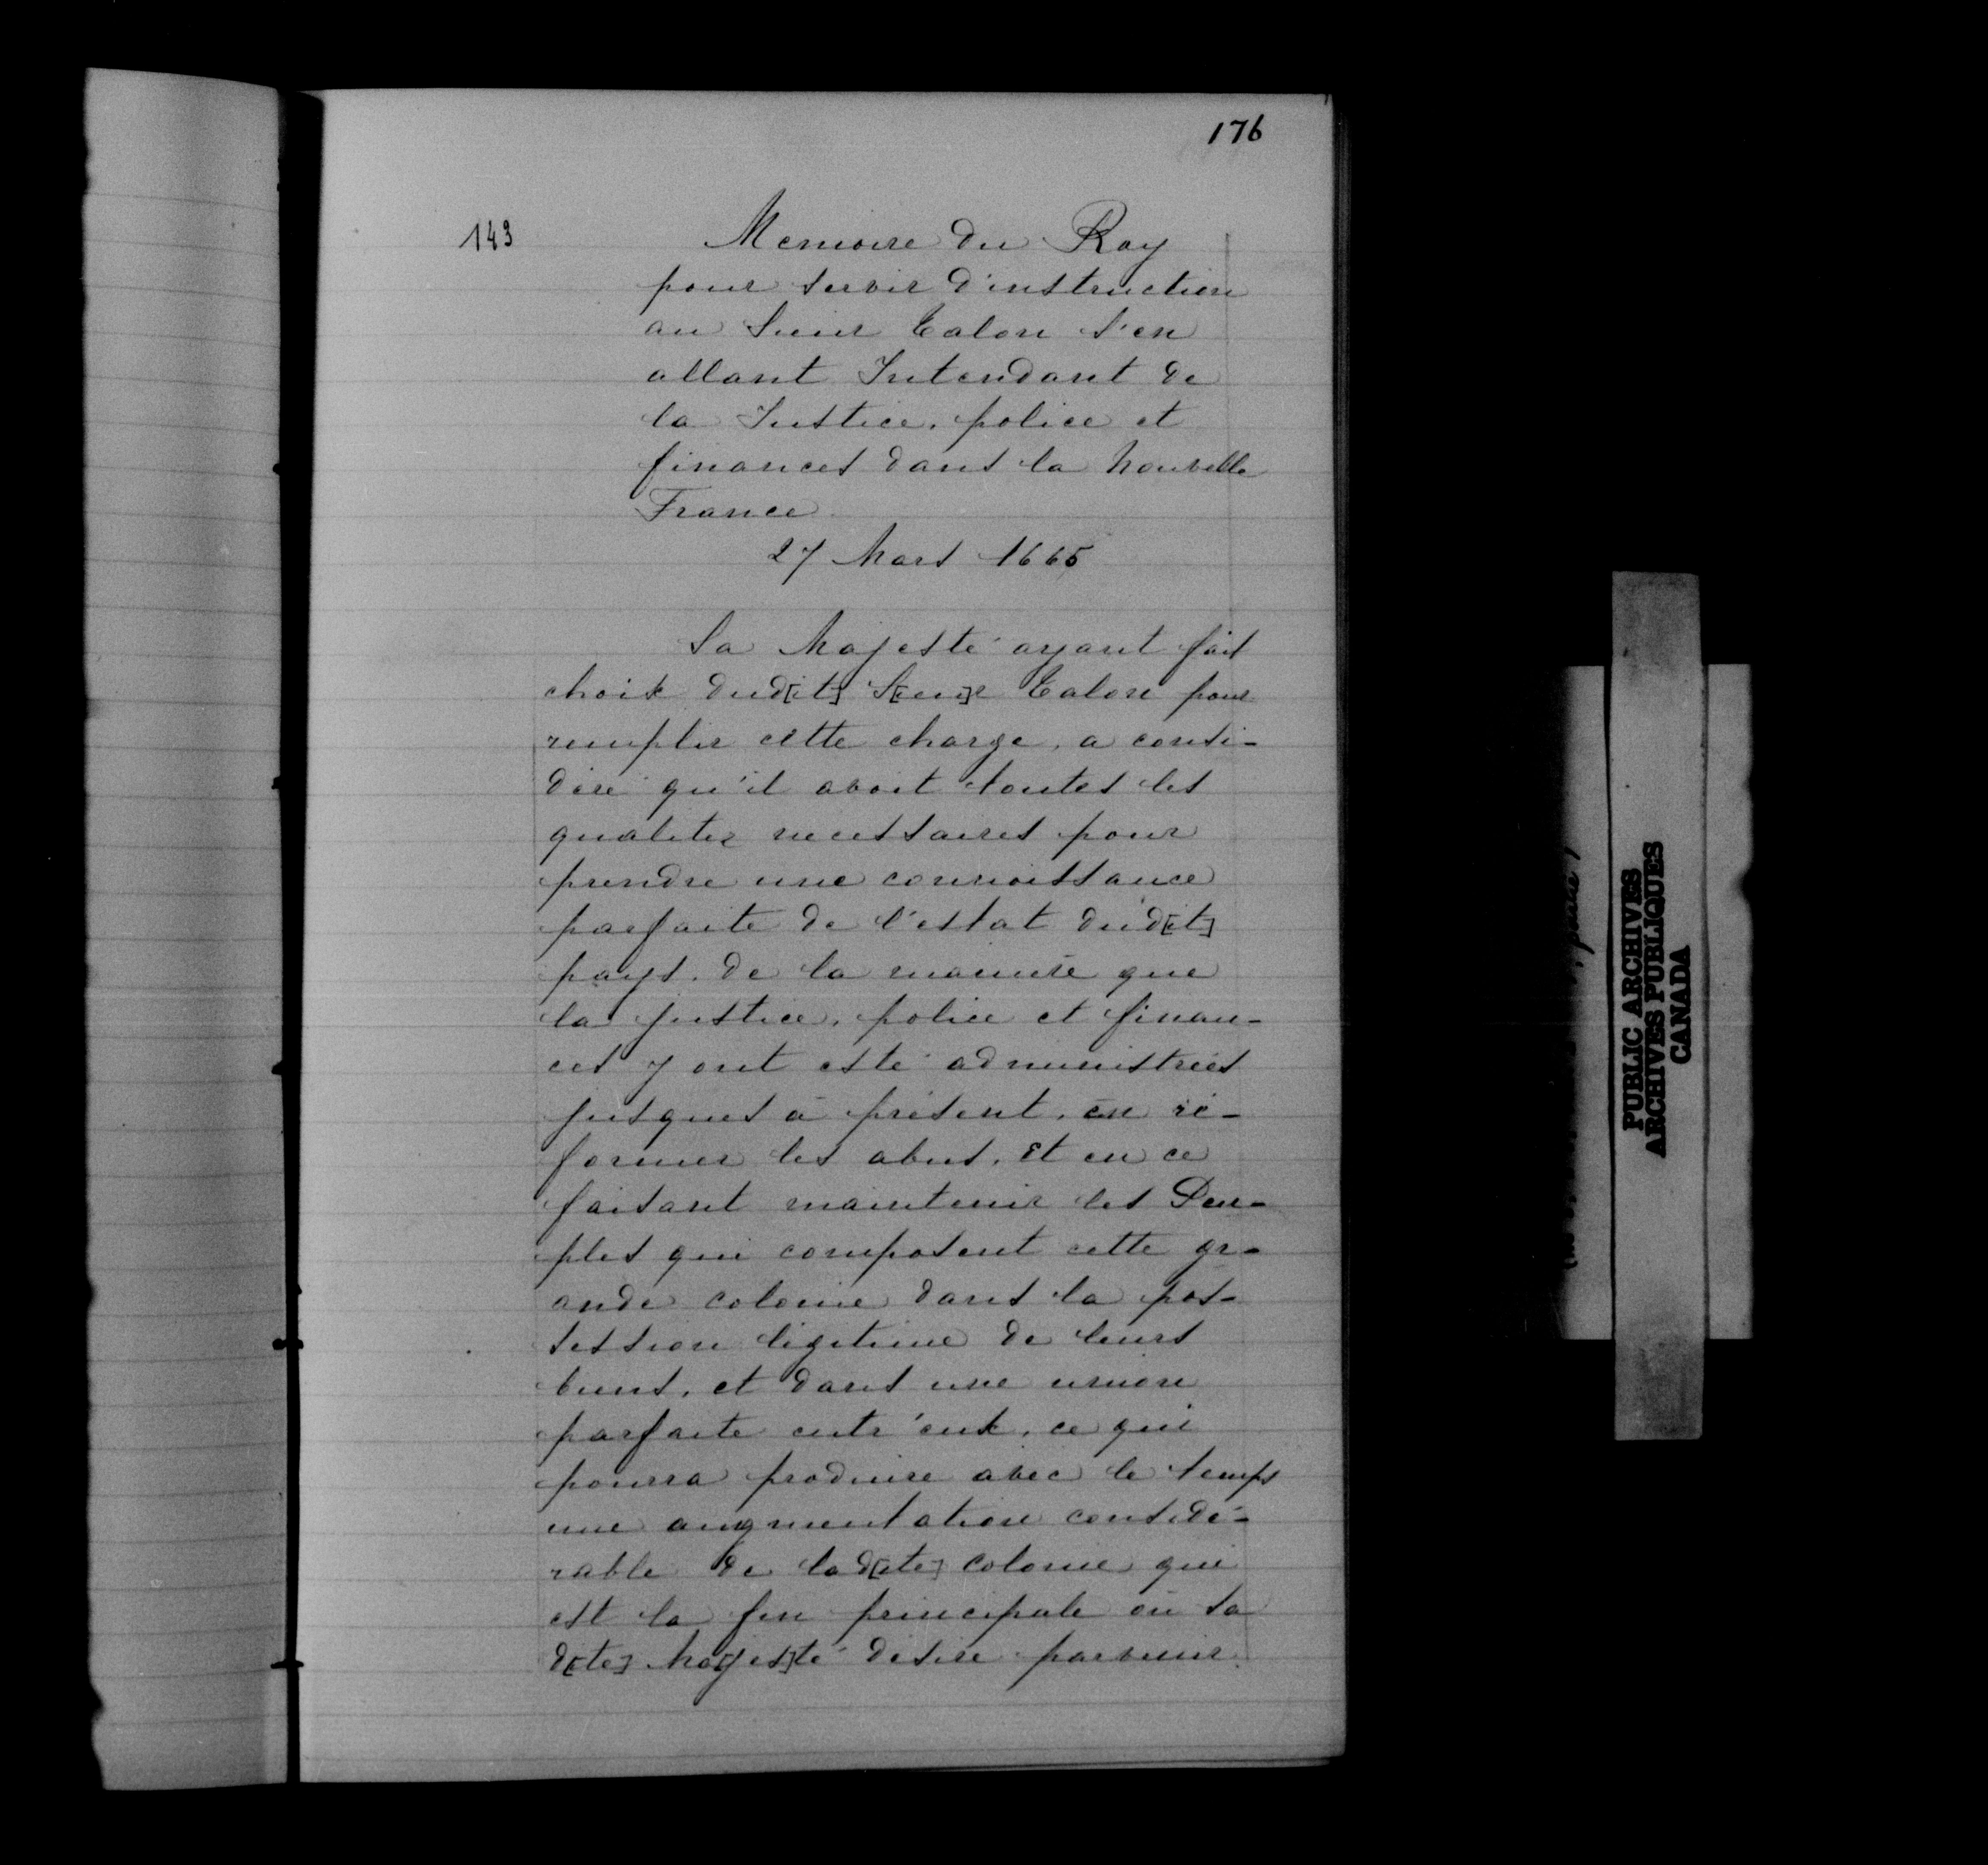 176
143
Memoire du Roy
pour servir d'instruction
au Sieur Talon s'en
allant Intendant de
la Justice, police et
finances dans la Nouvelle
France
27 Mars 1665
Sa Majesté ayant fait
choix dud[it] S[ieu]r Talon pour
remplir cette charge, a consi-
déré qu'il avoit toutes les
qualitez necessaires pour
prendre une connoissance
parfaite de l'estat dud[it]
pays, de la manière que
la justice, police et finan-
ces y ont esté administrées
jusques à présent, en ré-
former les abus, et en ce
faisant maintenir les Peu-
ples qui composent cette gr-
ande colonie dans la pos-
session légitime de leurs
biens, et dans une union
parfaite entr'eux, ce qui
pourra produire avec le temps
une augmentation considé-
rable de lad[ite] colonie qui
est la fin principale où sa
d[ite] Ma[jes]té désire parvenir.
PUBLIC ARCHIVES
ARCHIVES PUBLIQUES
CANADA